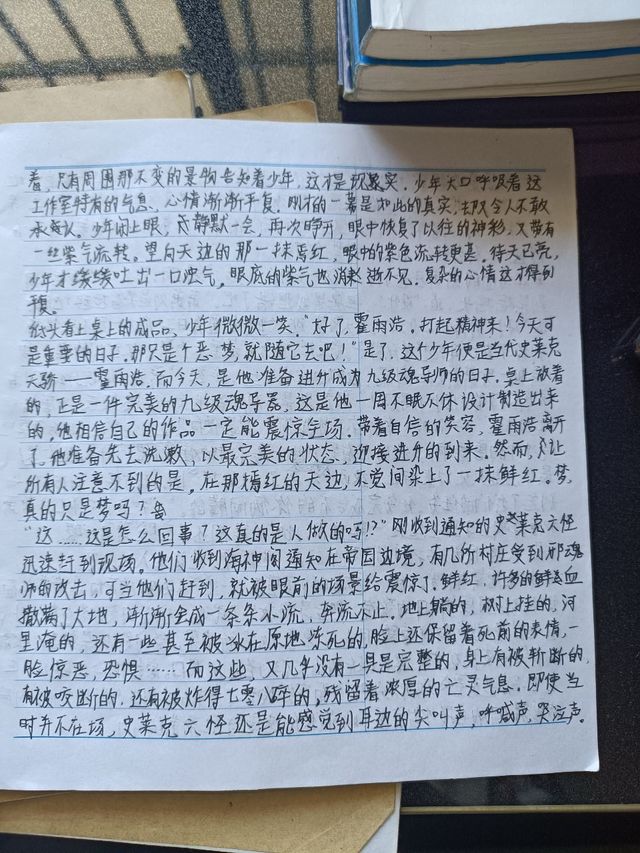 着，只有周围那不变的景物告知着少年，这才是现实。少年大口呼吸着这
工作室特有的气息，心情渐渐平复。刚才的一幕是如此的真实，却又令人不敢
承认。少年闭上眼，静默一会，再次睁开，眼中恢复了以往的神彩，又带有
一丝紫气流转。望向天边的那一抹嫣红，眼中的紫色流转更甚。待天已亮，
少年才缓缓吐出一口浊气，眼底的紫气也消逝不见。复杂的心情这才得到
平复。
低头看上桌上的成品，少年微微一笑，“好了，霍雨浩，打起精神来！今天可
是重要的日子，那只是个恶梦，就随它去吧！”是了，这个少年便是当代史莱克
天骄——霍雨浩。而今天，是他准备进升成为九级魂导师的日子。桌上放着
的，正是一件完美的九级魂导器。这是他一周不眠不休设计制造出来
的，他相信自己的作品一定能震惊全场。带着自信的笑容，霍雨浩离开
了。他准备先去洗漱，以最完美的状态，迎接进升的到来。然而，让
所有人注意不到的是，在那嫣红的天边，不觉间染上了一抹鲜红。梦，
真的只是梦吗？
“这……这是怎么回事？这真的是人做的吗！？”刚收到通知的史莱克六怪
迅速赶到现场。他们收到海神阁通知在帝国边境，有几所村庄受到邪魂
师的攻击，可当他们赶到，就被眼前的场景给震惊了。鲜红，许多的鲜血
撒满了大地，渐渐会成一条条小流，奔流不止。地上躺的，树上挂的，河
里淹的，还有一些甚至被冰在原地冻死的，脸上还保留着死前的表情，一
脸惊恶，恐惧……而这些，又几乎没有一具是完整的，身上有被斩断的，
有被咬断的，还有被炸得七零八碎的，残留着浓厚的亡灵气息，即使当
时并不在场，史莱克六怪还是能感觉到耳边的尖叫声，呼喊声，哭泣声。